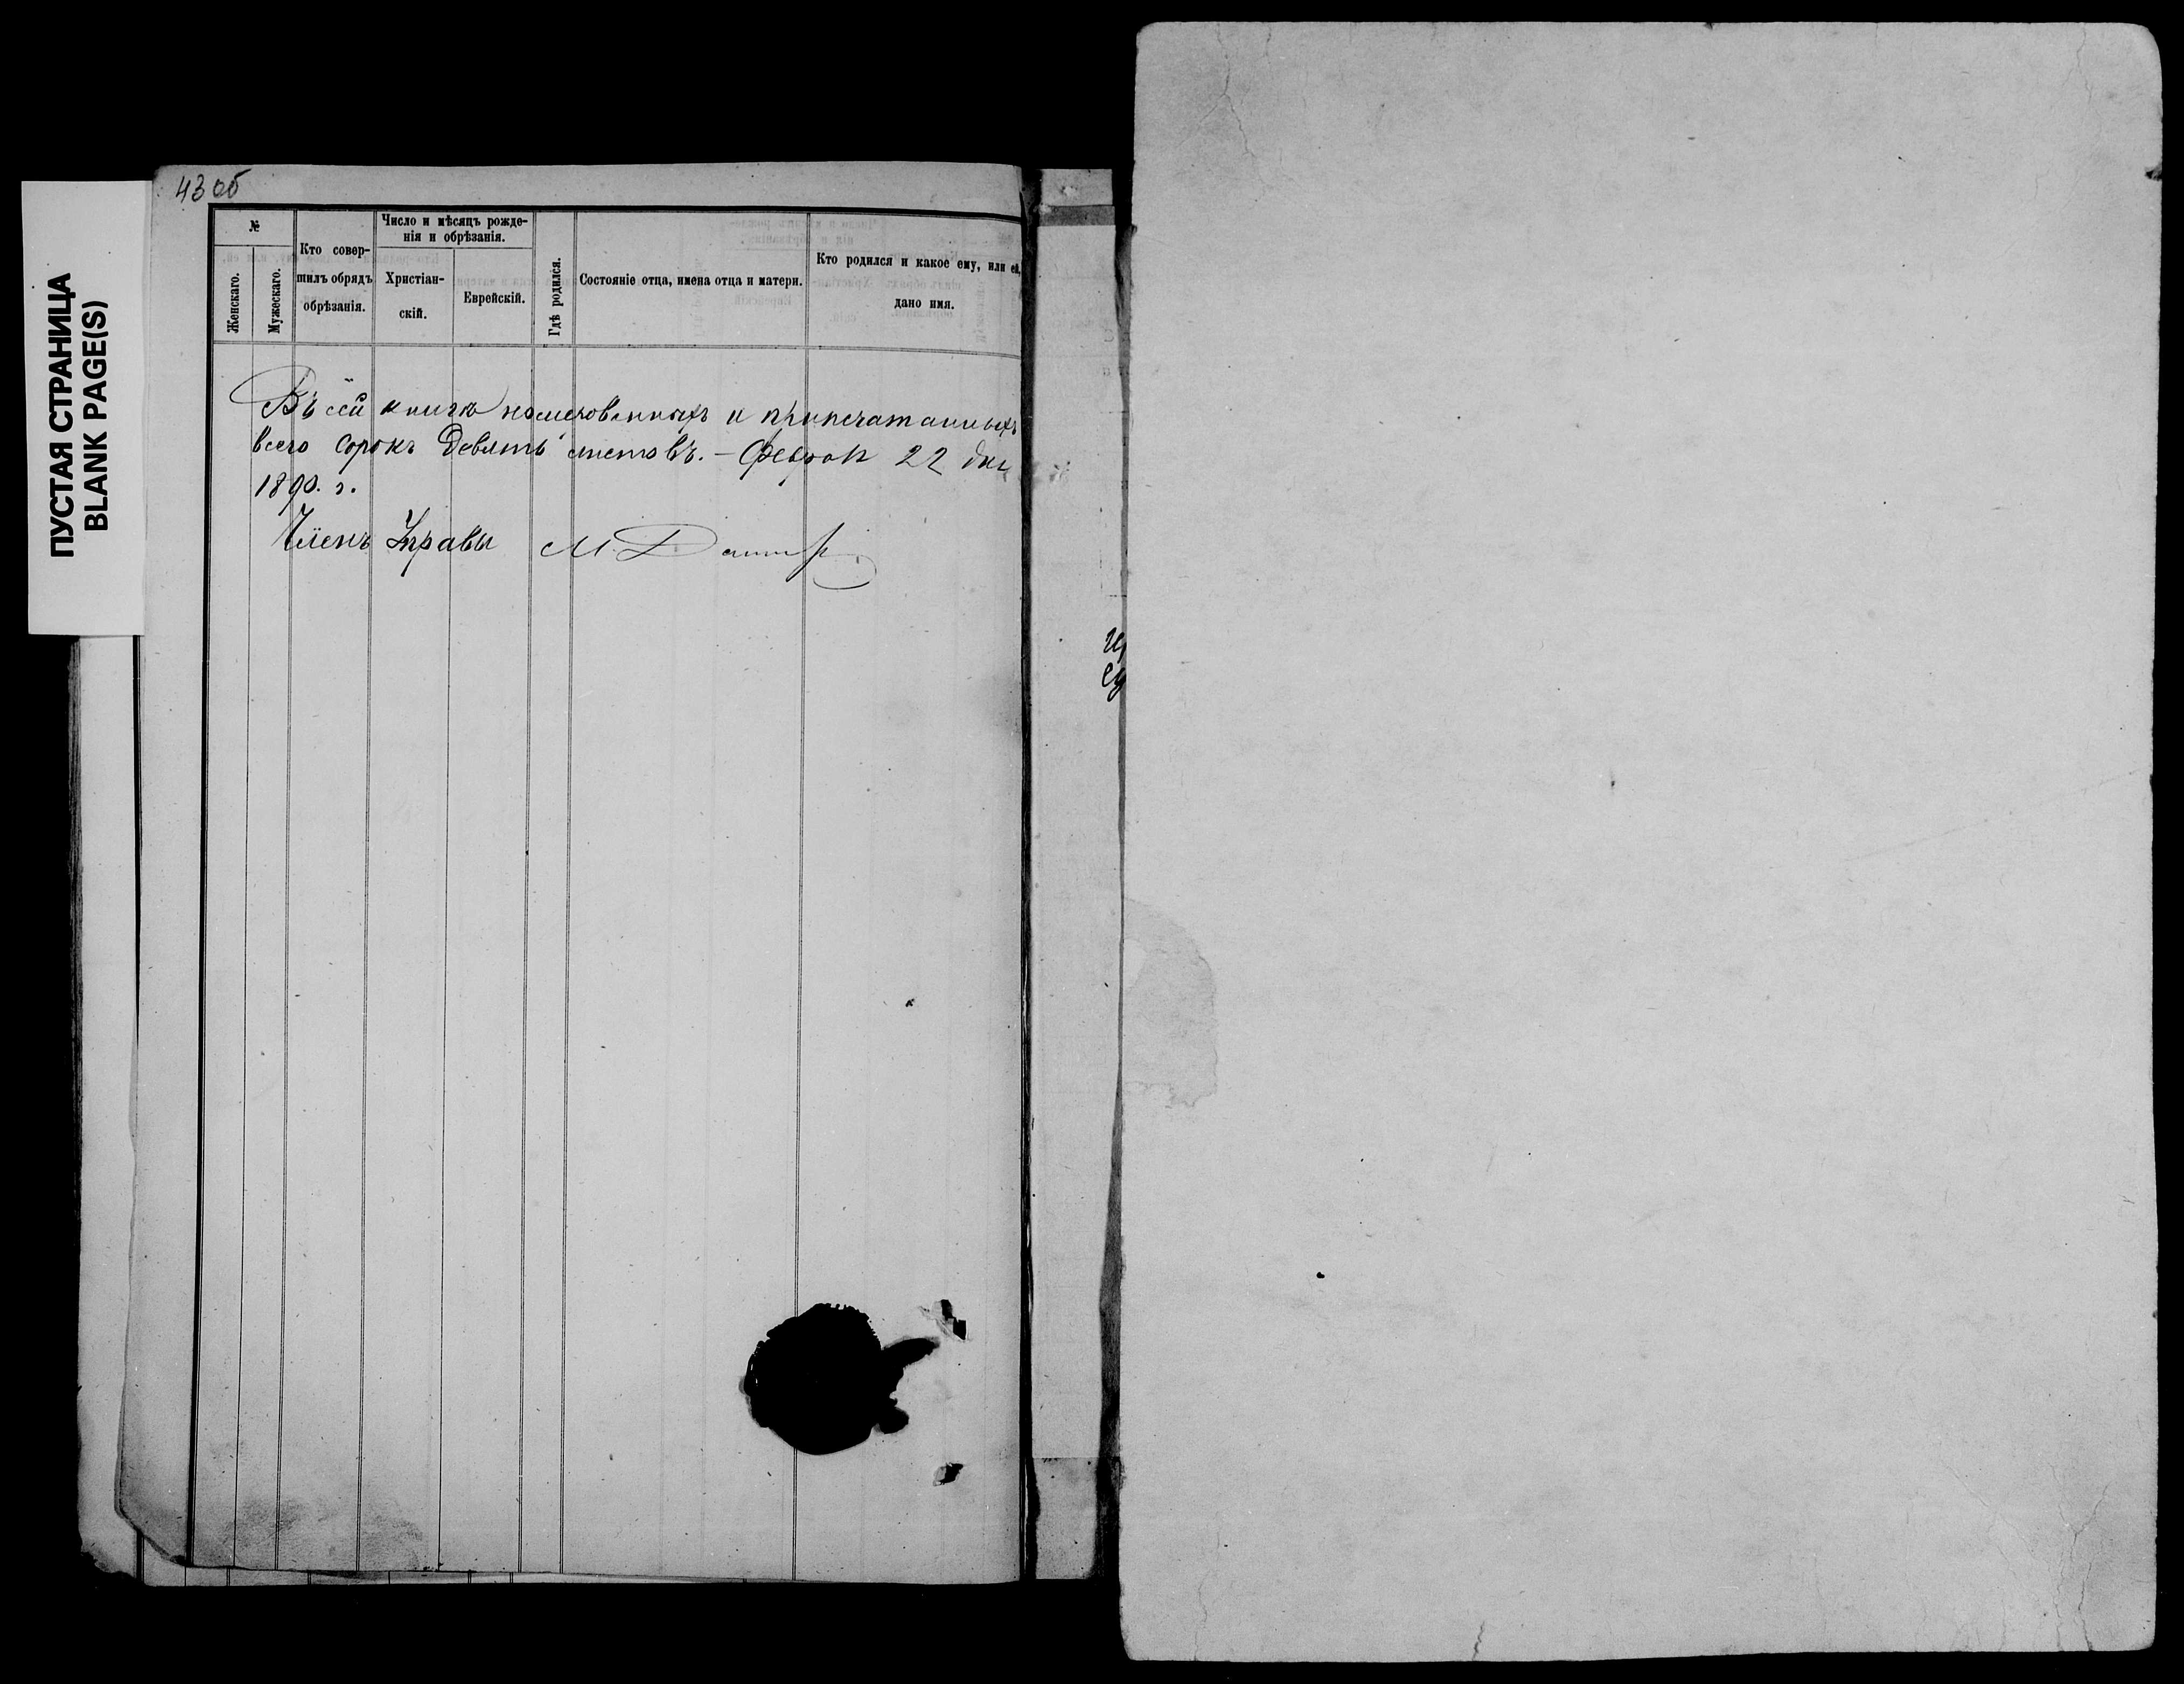 ПУСТАЯ СТРАНИЦА
BLANK PAGE(S)
43 об
№
Женскаго.
Мужескаго.
Кто совер-
шилъ обрядъ
обрѣзанія.
Число и мѣсяцъ рожде-
нія и обрѣзанія.
Христіан-
скій.
Еврейскій.
Гдѣ родился.
Состояніе отца, имена отца и матери.
Кто родился и какое ему, или ей,
дано имя.
Въ сей книгѣ и припечатанныхъ
всего сорокъ девять листовъ. – Февраля 22 дня
1890. г.
Членъ Управы М.